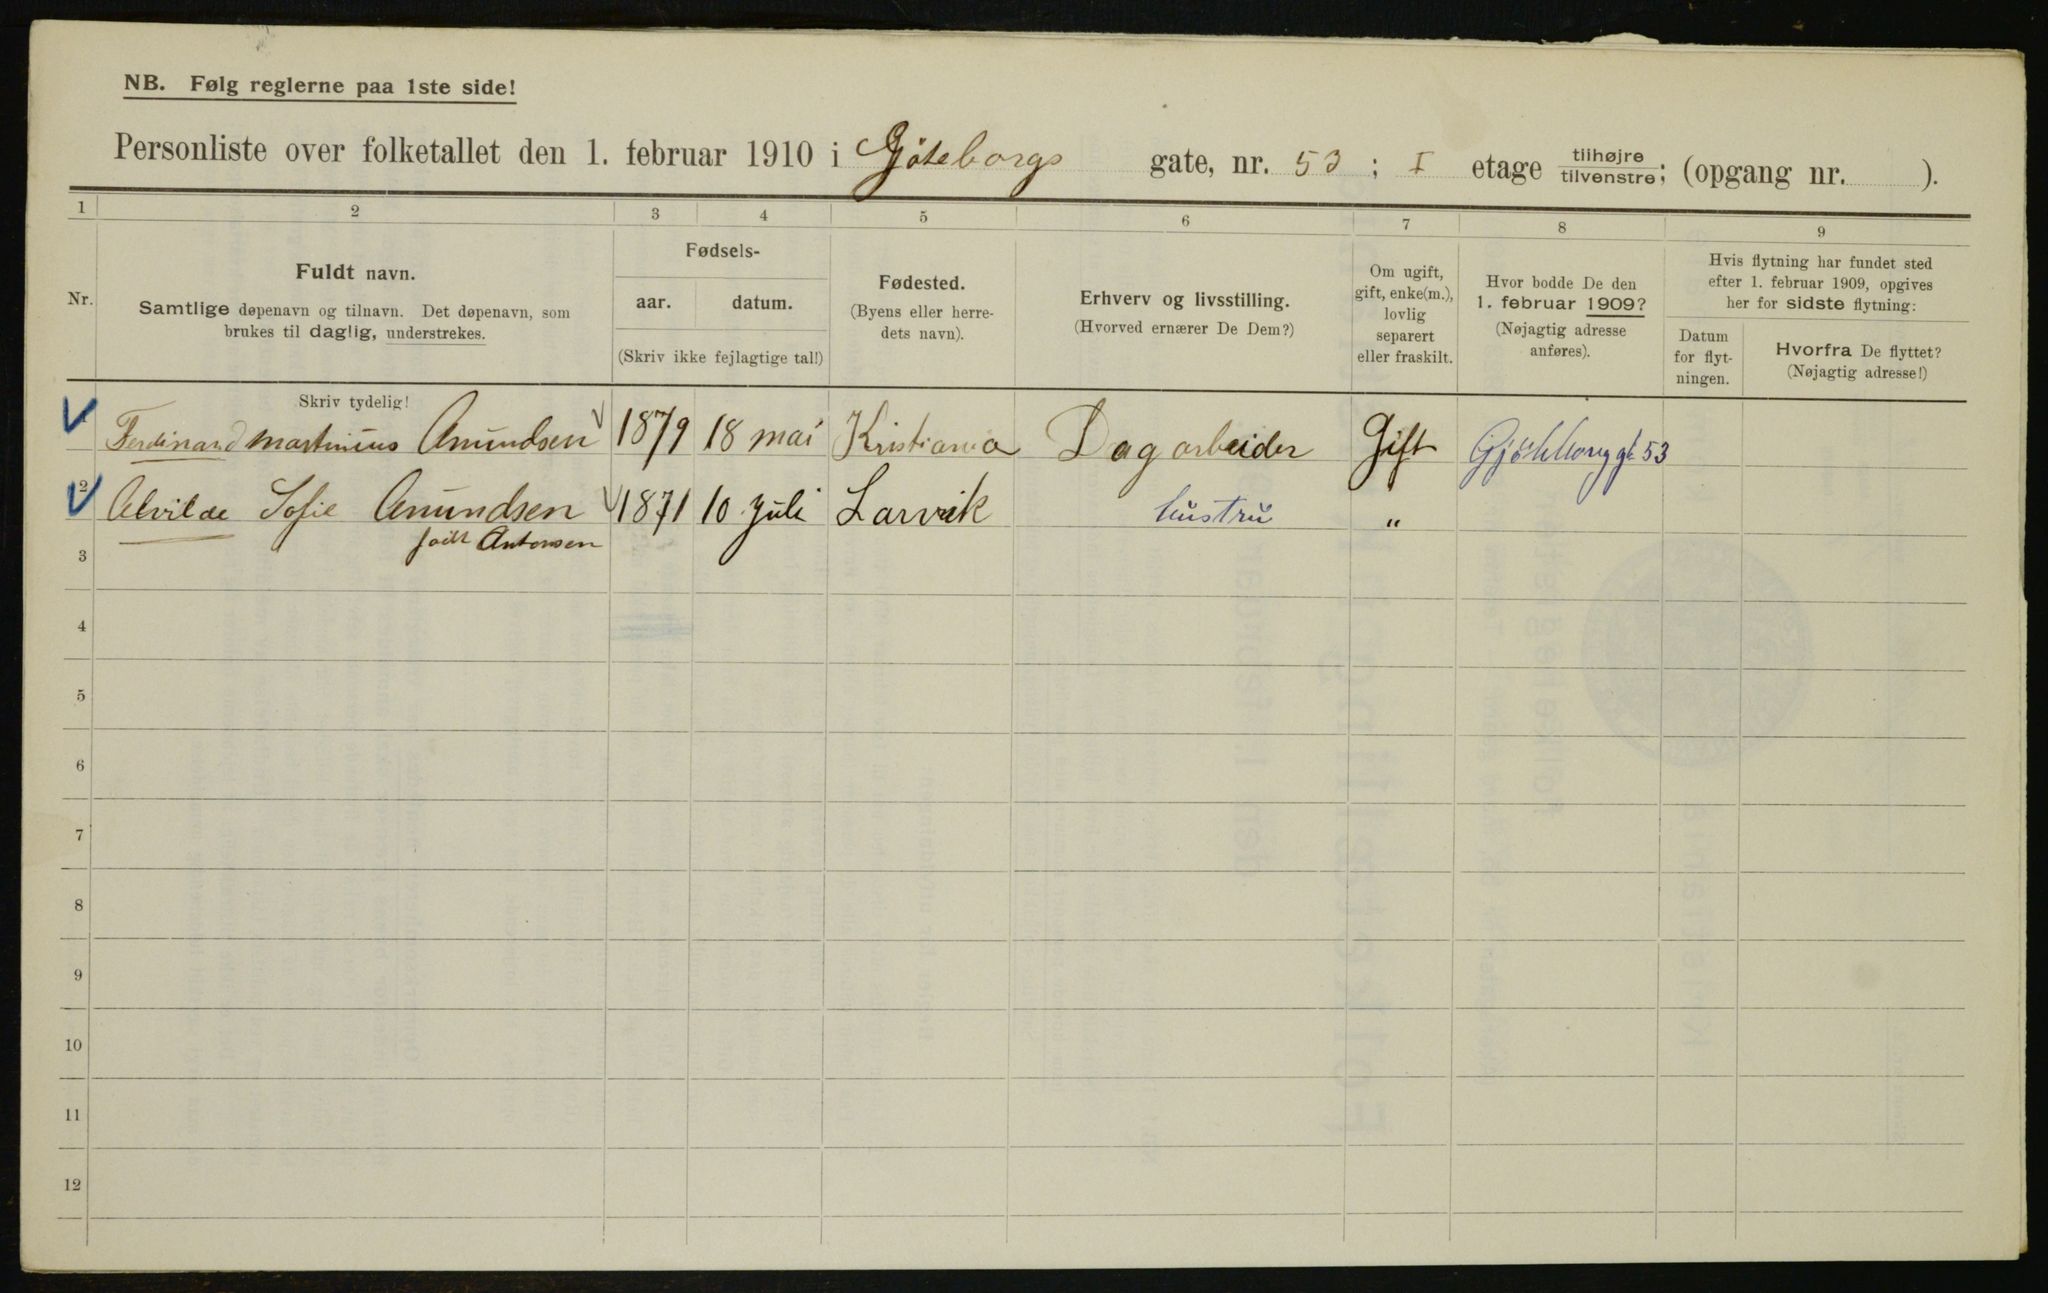 NB. Følg reglerne paa 1ste side!
Personliste over folketallet den 1. februar 1910 i Gjöteborgs gate, nr. 53; I etage tilhøjre tilvenstre; (opgang nr. ).
1 2 3 4 5 6 7 8 9
Nr.
Fuldt navn.
Samtlige døpenavn og tilnavn. Det døpenavn, som
brukes til daglig, understrekes.
Skriv tydelig!
Fødsels-
aar. datum.
(Skriv ikke fejlagtige tal!)
Fødested.
(Byens eller herre-
dets navn).
Erhverv og livsstilling.
(Hvorved ernærer De Dem?)
Om ugift,
gift, enke(m.),
lovlig
separert
eller fraskilt.
Hvor bodde De den
1. februar 1909?
(Nøjagtig adresse
anføres).
Hvis flytning har fundet sted
efter 1. februar 1909, opgives
her for sidste flytning:
Datum
for flyt-
ningen.
Hvorfra De flyttet?
(Nøjagtig adresse!)
Ferdinand Martinius Amundsen 1879 18 mai Kristiania Dagarbeider Gift 53
2 Alvilde Sofie Amundsen 1871 10 Juli Larvik hustru "
födt Antonsen
3
4
5
6
7
8
9
10
11
12